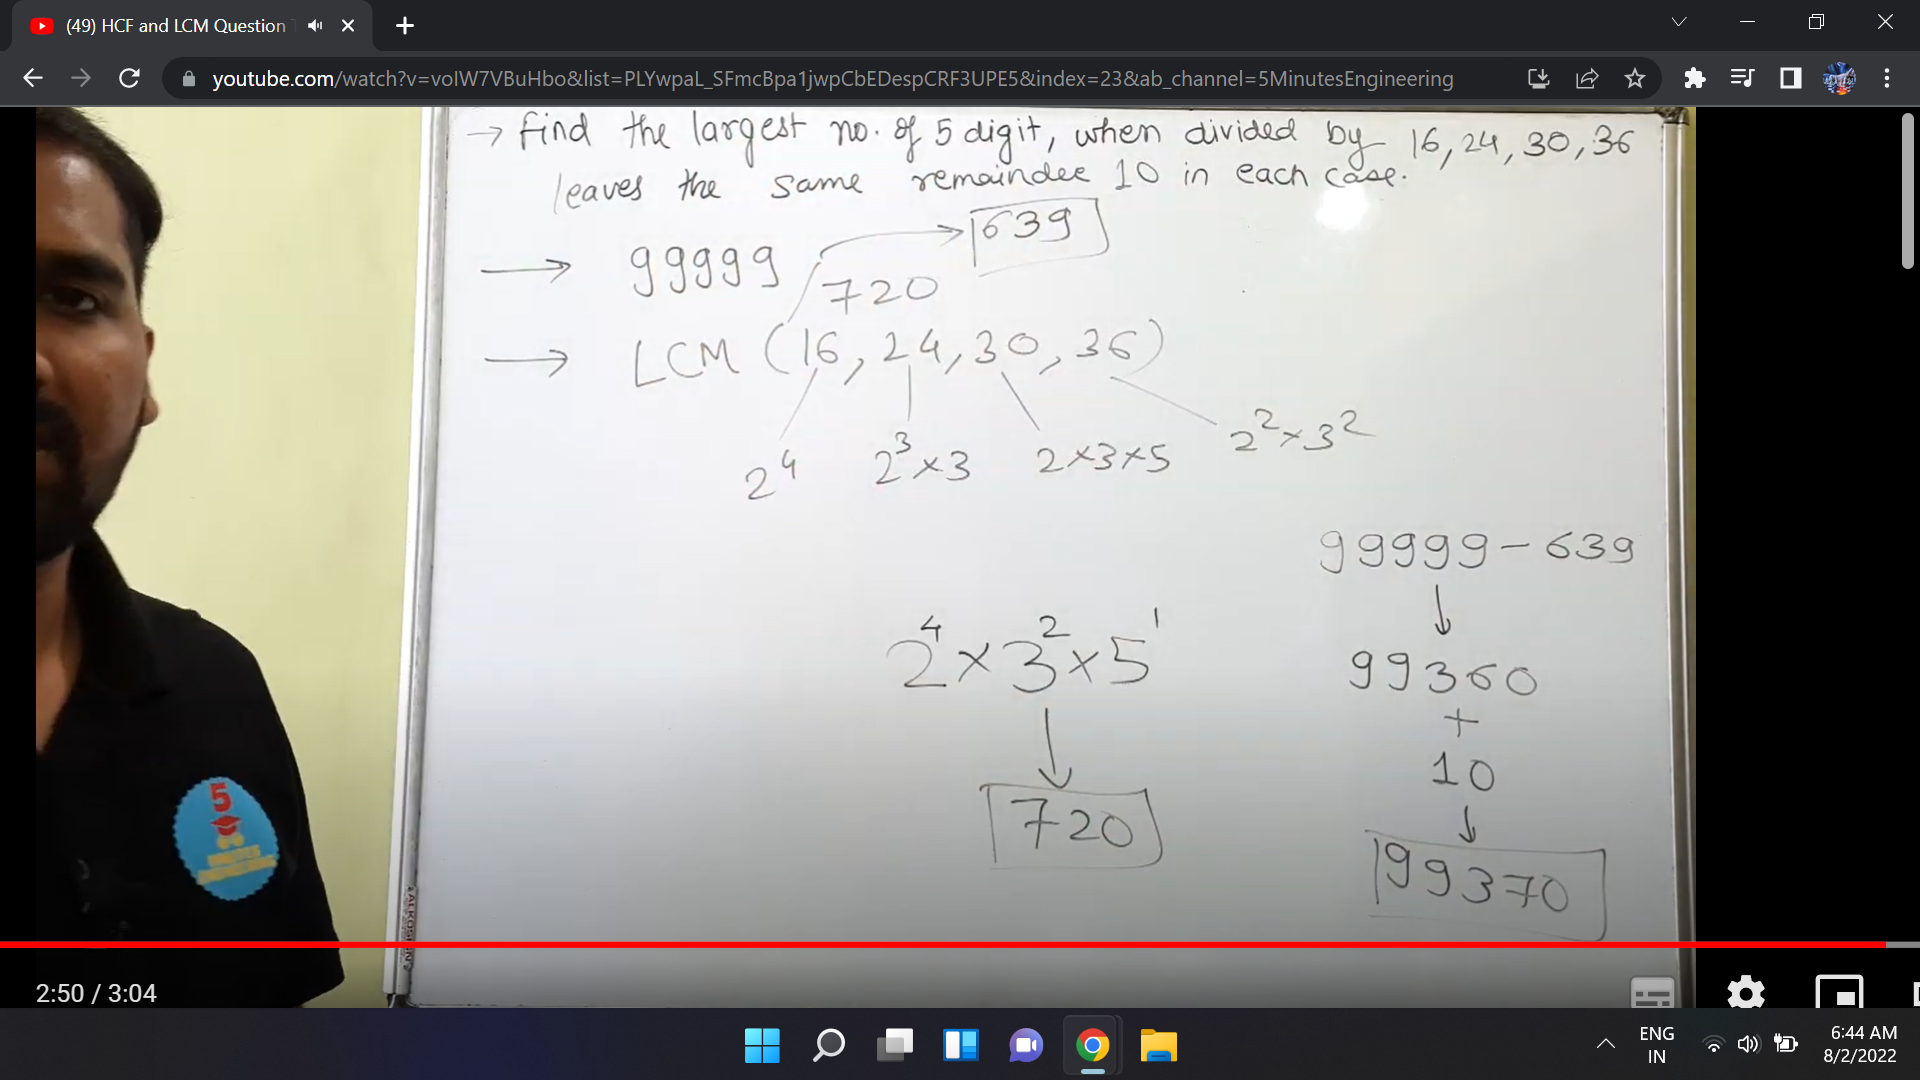 (49) HCF and LCM Question
youtube.com/watch?v=voIW7VBuHbo&list=PLYwpaL_SFmcBpa1jwpCbEDespCRF3UPE5&index=23&ab_channel=5MinutesEngineering
→ find the largest no. of 5 digit, when divided by 16, 24, 30, 36
leaves the same remainder 10 in each case.
639
→ 99999
720
→ LCM (16, 24, 30, 36)
2^4 2^3×3 2×3×5 2^2×3^2
99999 - 639
2^4 × 3^2 × 5^1
99360
+
10
720
99370
5
2:50 / 3:04
ENG
IN
6:44 AM
8/2/2022